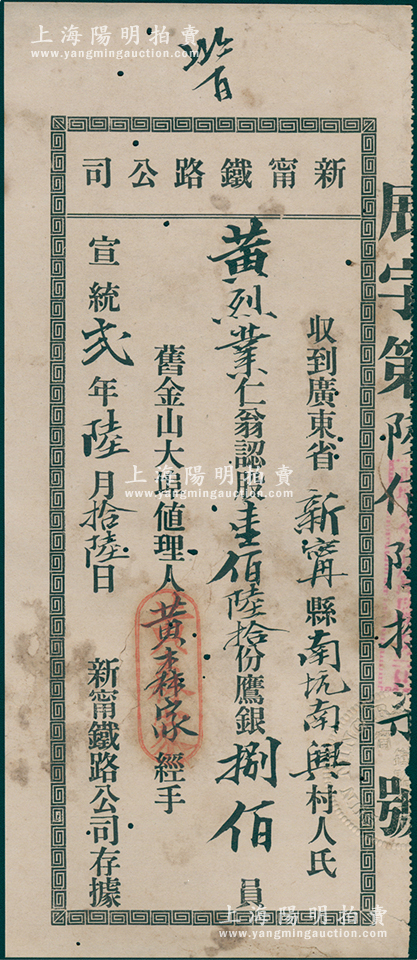 上海陽明拍賣
www.yangmingauction.com
百
新甯鐵路公司
展字第陸仟陸拾號
收到廣東省新甯縣南坑南興村人氏
黃烈業仁翁認股壹佰陸拾份鷹銀捌佰員
舊金山大埠值理人黃森家經手
宣統貳年陸月拾陸日
新甯鐵路公司存據
上海陽明拍賣
www.yangmingauction.com
上海陽明拍賣
www.yangmingauction.com